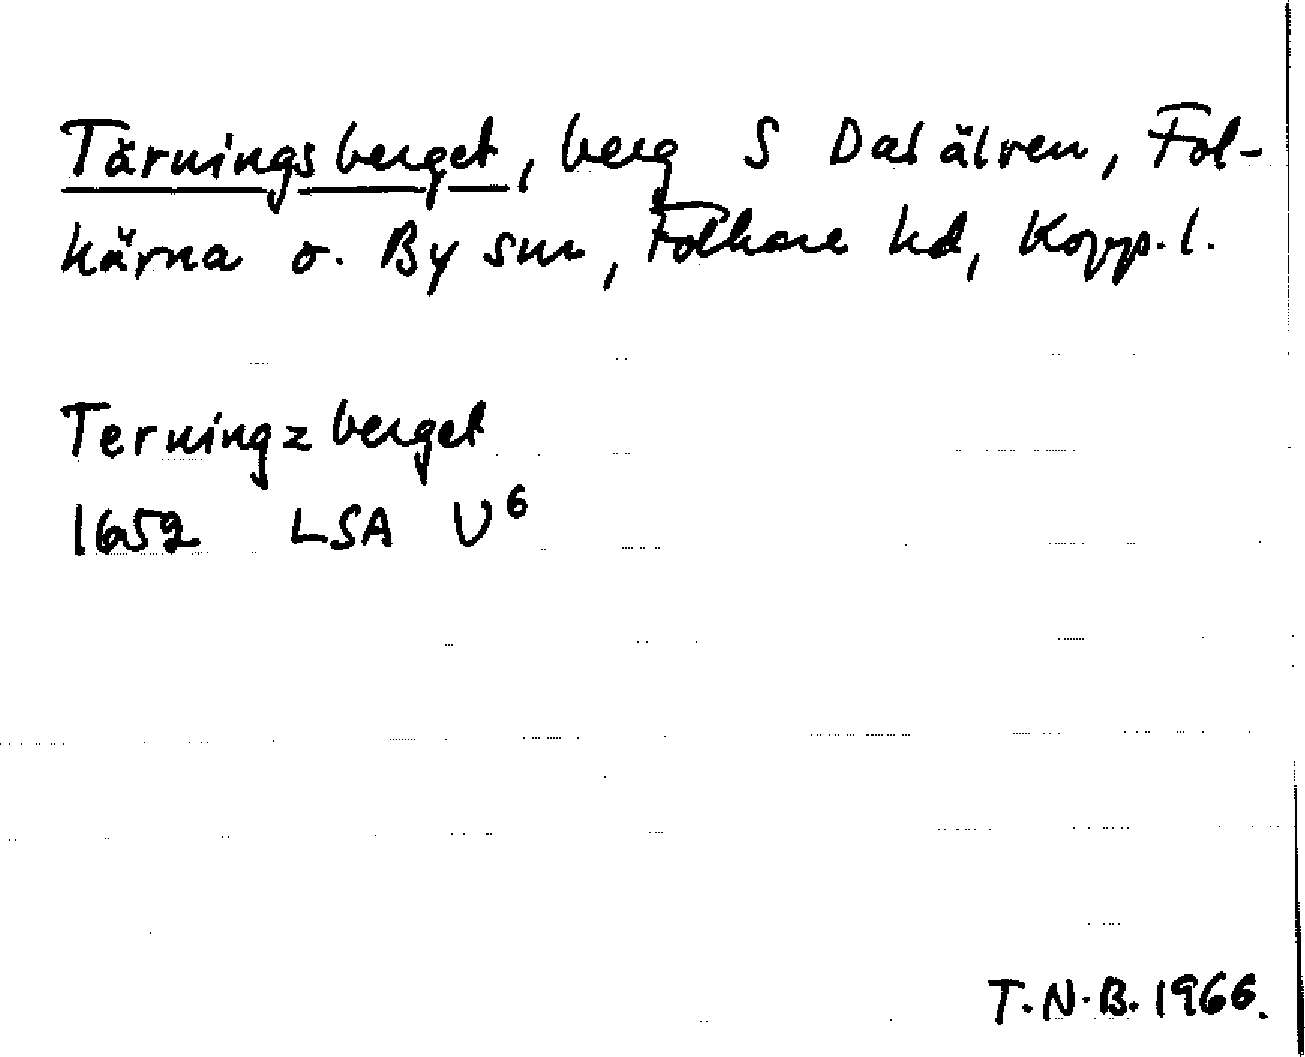 Tärningsberget, berg S Dalälven, Fol-
kärna o. By snr, Folkare hd, Kopp. l.
Terningzberget
1652 LSA U⁶
T.N.B. 1966.